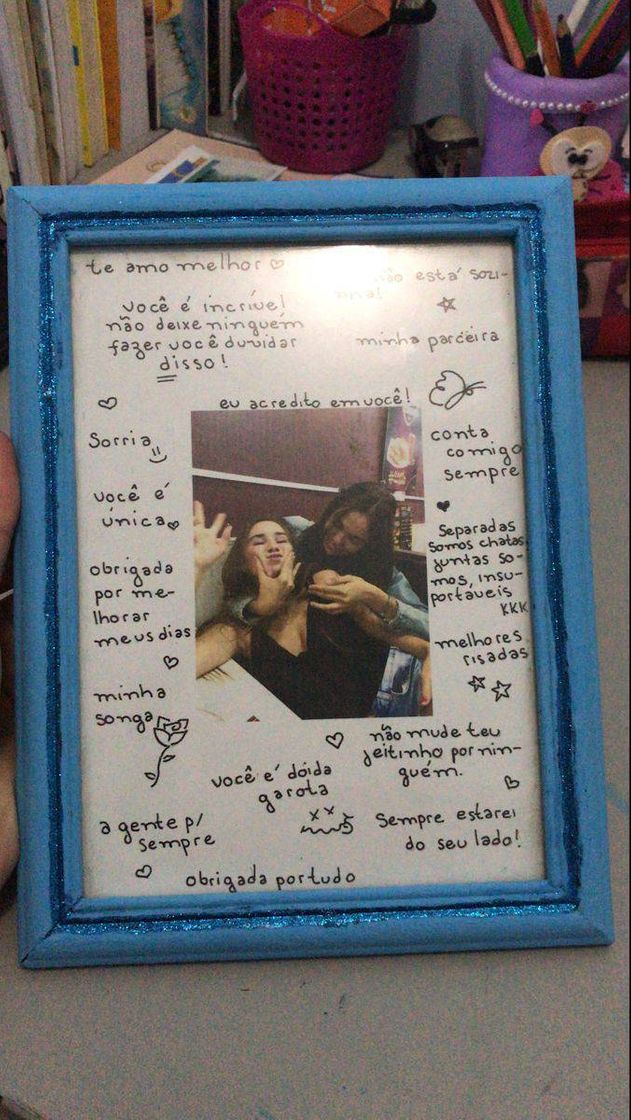 te amo melhor
não está sozi-
nha!
você é incrível
não deixe ninguém
fazer você duvidar
disso!
minha parceira
eu acredito em você!
Sorria
conta
comigo
sempre
você é
única
Separadas
somos chatas,
juntas so-
mos, insu-
portáveis
KKK
obrigada
por me-
lhorar
meus dias
melhores
risadas
minha
songa
não mude teu
jeitinho por nin-
guém.
você é dóida
garota
a gente p/
sempre
Sempre estarei
do seu lado!
obrigada por tudo